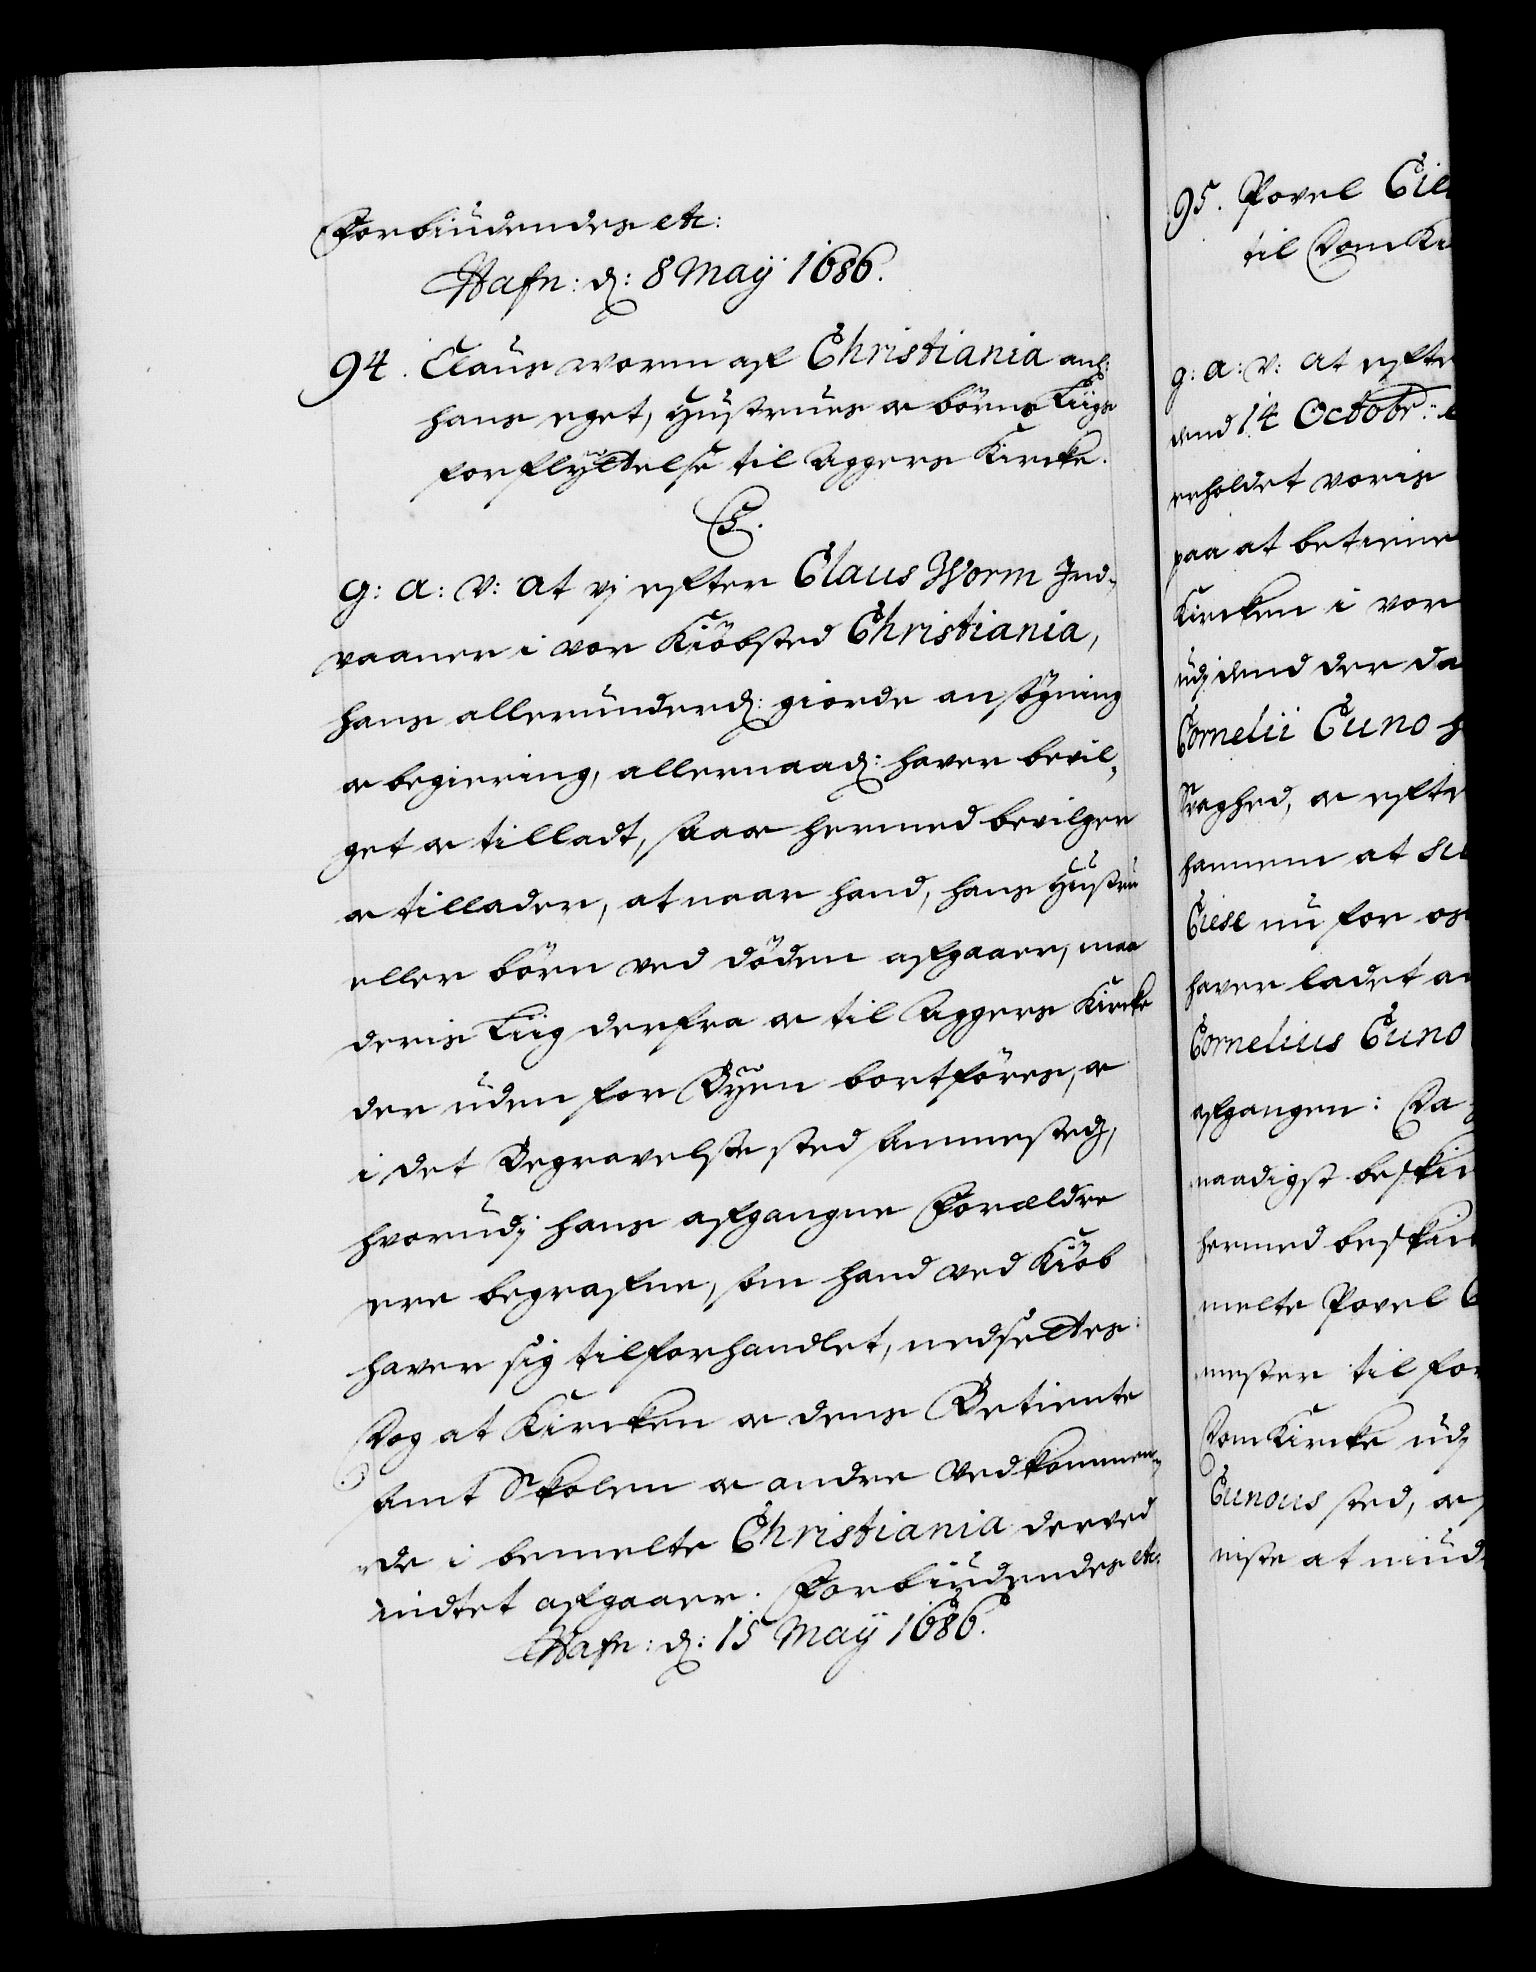 Forbiudendes etc:
Hafn: d: 8 Maÿ 1686.
94. Claus Worm af Christiania anl:
hans eget, Hustrues oc børns Liigs
forflyttelse til Aggers Kircke.
C5.
G: A: V: At vj efter Claus Worm Ind-
vaaner i vor Kiøbsted Christiania,
hans allerunderd: giorde ansøgning
oc begiering, allernaad: haver bevil-
get oc tilladt, saa oc hermed bevilger
oc tillader, at naar hand, hans Hustru
eller børn ved døden afgaaer, maa
deris Liig derfra oc til Aggers Kircke
der uden for Byen bortføres, oc
i det Begravelse sted sammesteds,
hvorudj hans afgangne Forældre
ere begrafne, som hand ved Kiøb
haver sig tilforhandlet, nedsettes:
Dog at Kircken oc dens Betiente
samt Skolen oc andre Vedkommen-
de i bemelte Christiania derved
intet afgaaer. Forbiudendes etc:
Hafn: d: 15 Maÿ 1686.
95. Povel
til DomKi
g: a: v: At efte
dend 14 Octobr:
erholdet voris
paa at betiene
Kircken i vor
udj dend der da
Cornelii Cuno
Svaghed, oc efte
hannem at
Ciese nu for os
haver ladet an
Cornelius Cuno
afgangen: Da
naadigst beskic
hermed beskic
melte Povel C
mester til for
DomKircke udj
Cunous sted, oc
niste at niud